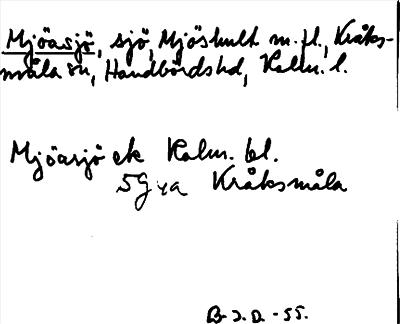 Mjöasjö, sjö, Mjöshult m. fl., Kråks-
måla sn, Handbörds hd, Kalm. l.
Mjöasjö ek Kalm. bl.
5G Kråksmåla
-55.